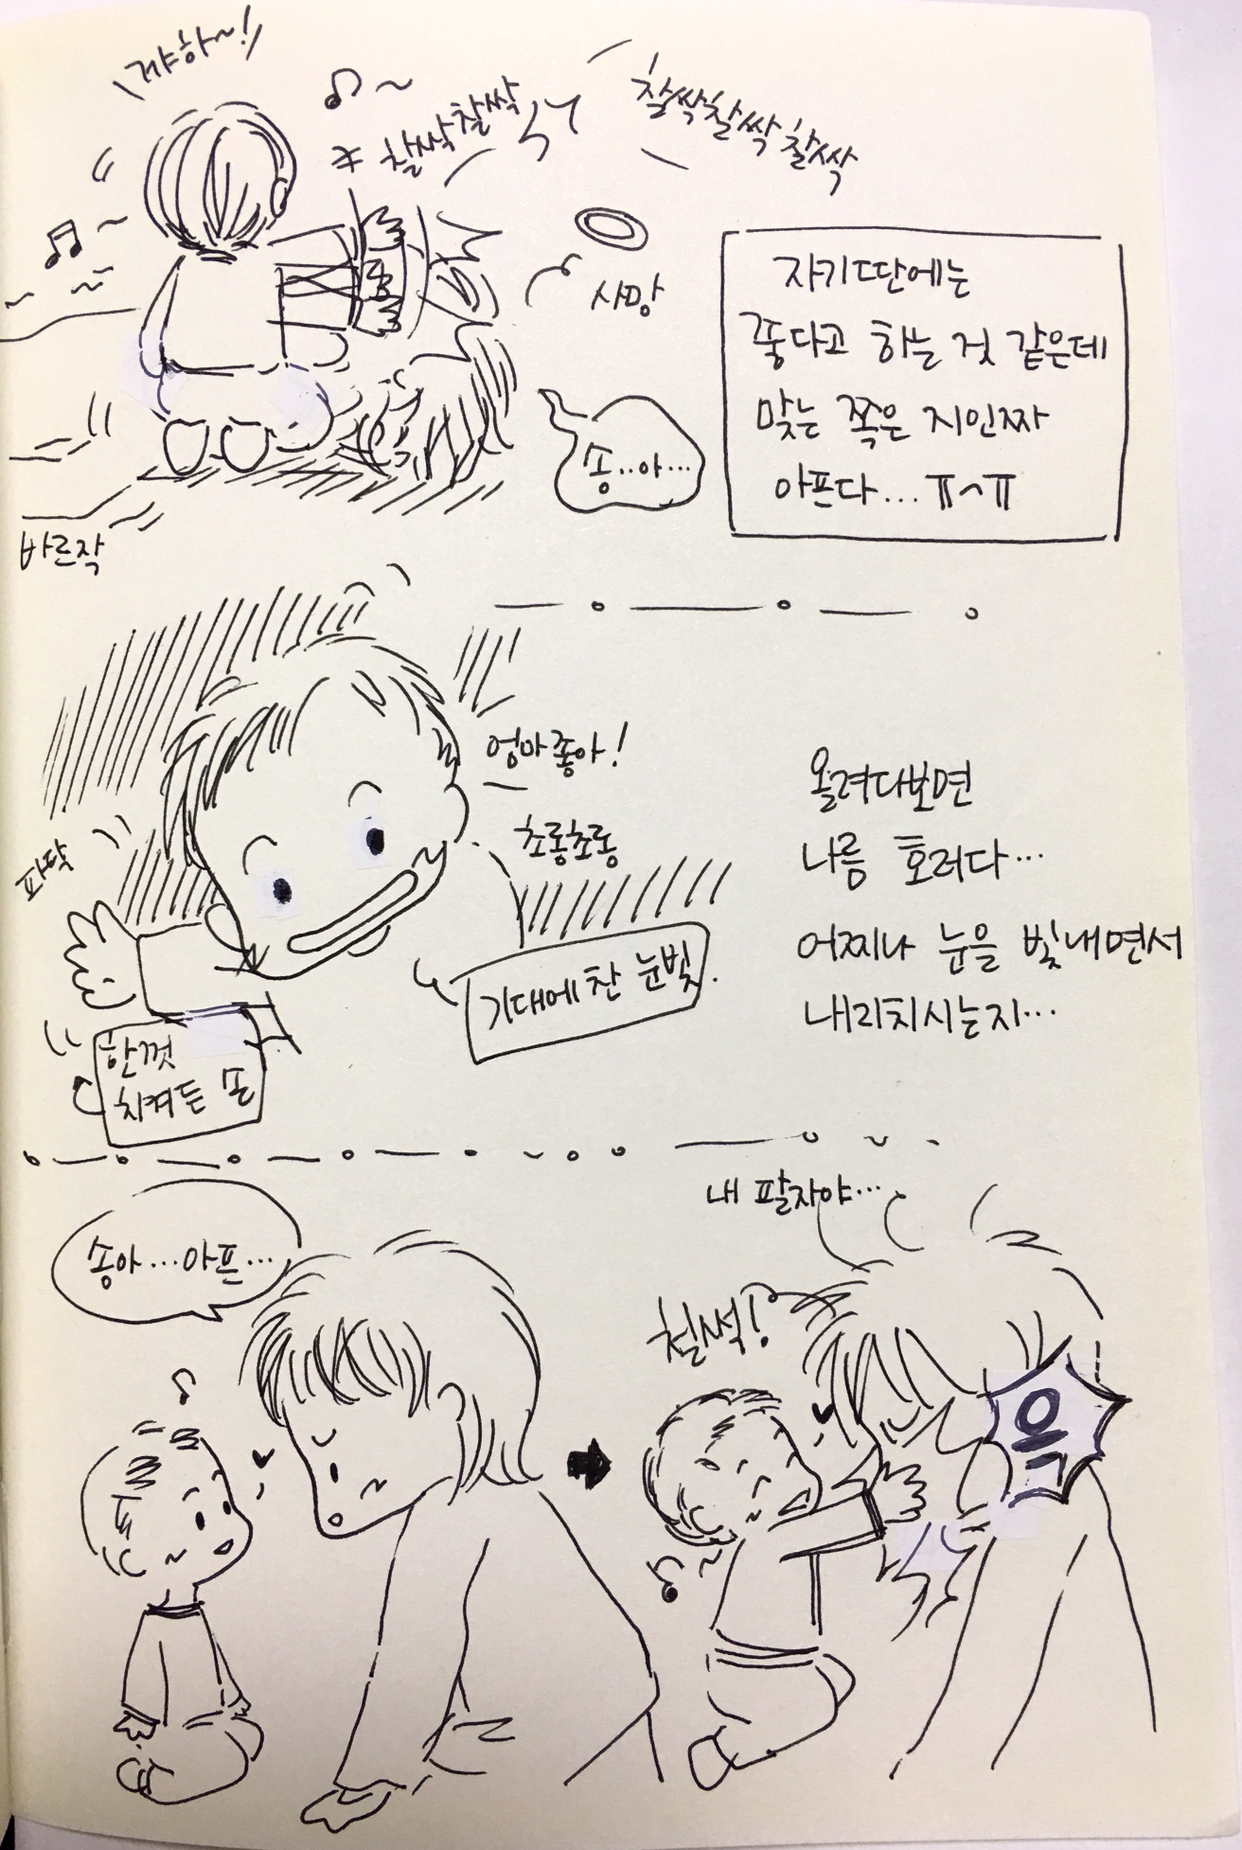 꺄하~!
찰싹찰싹
찰싹찰싹찰싹
사망
송..아...
바르작
자기딴에는
좋다고 하는 것 같은데
맞는 쪽은 지인짜
아프다... ㅠㅅㅠ
엄마 좋아!
초롱초롱
파닥
기대에 찬 눈빛.
한껏
치켜든 손
올려다보면
나름 호러다...
어찌나 눈을 빛내면서
내리치시는지...
송아...아픈...
내 팔자야...
철썩!
윽